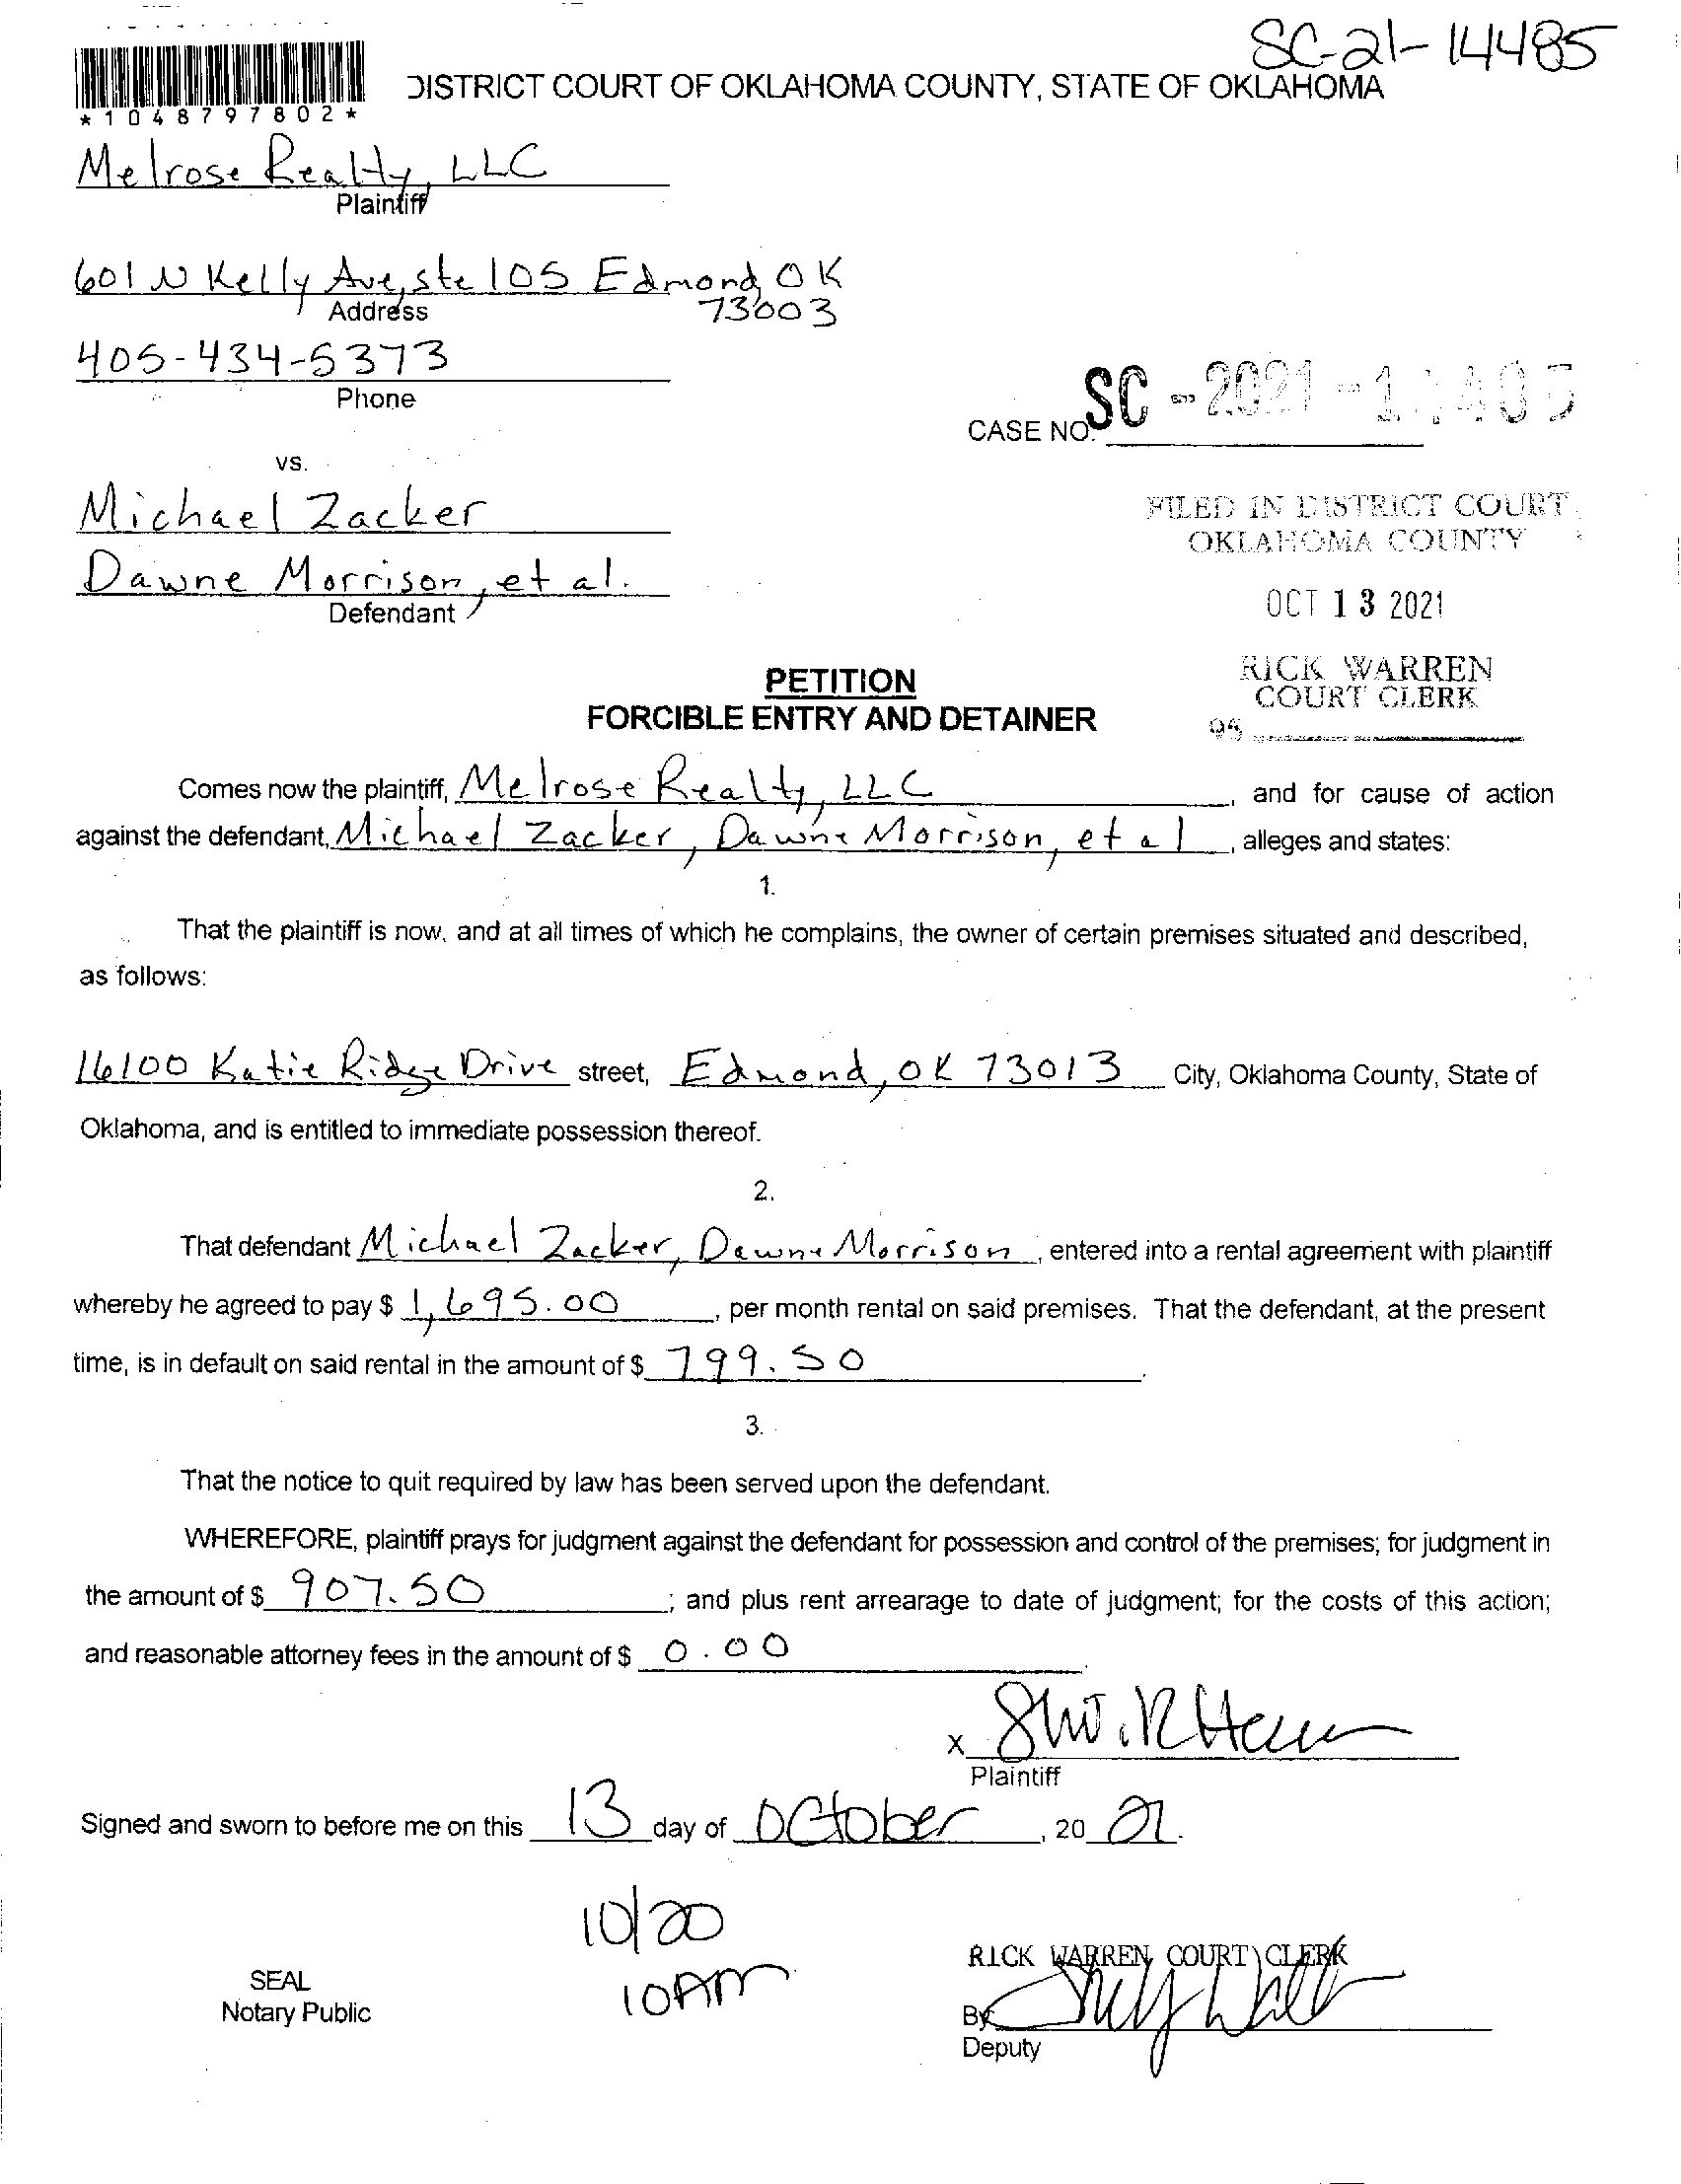 SC-21-14485
DISTRICT COURT OF OKLAHOMA COUNTY, STATE OF OKLAHOMA
*1048797802*
Melrose Realty, LLC
Plaintiff
601 N Kelly Ave, ste 105 Edmond, OK
73003
Address
405-434-5373
Phone
SC-2021-
CASE NO.
vs.
Michael Zacker
Dawne Morrison, et al.
Defendant
FILED IN DISTRICT COURT
OKLAHOMA COUNTY
OCT 13 2021
RICK WARREN
COURT CLERK
PETITION
FORCIBLE ENTRY AND DETAINER
Comes now the plaintiff, Melrose Realty, LLC, and for cause of action
against the defendant, Michael Zacker, Dawne Morrison, et al, alleges and states:
1.
That the plaintiff is now, and at all times of which he complains, the owner of certain premises situated and described,
as follows:
16100 Katie Ridge Drive street, Edmond, OK 73013 City, Oklahoma County, State of
Oklahoma, and is entitled to immediate possession thereof.
2.
That defendant Michael Zacker, Dawne Morrison, entered into a rental agreement with plaintiff
whereby he agreed to pay $ 1,695.00, per month rental on said premises. That the defendant, at the present
time, is in default on said rental in the amount of $ 799.50.
3.
That the notice to quit required by law has been served upon the defendant.
WHEREFORE, plaintiff prays for judgment against the defendant for possession and control of the premises; for judgment in
the amount of $ 907.50; and plus rent arrearage to date of judgment; for the costs of this action;
and reasonable attorney fees in the amount of $ 0.00.
X
Plaintiff
Signed and sworn to before me on this 13 day of October, 20 21.
10/20
10AM
SEAL
Notary Public
RICK WARREN COURT CLERK
By
Deputy